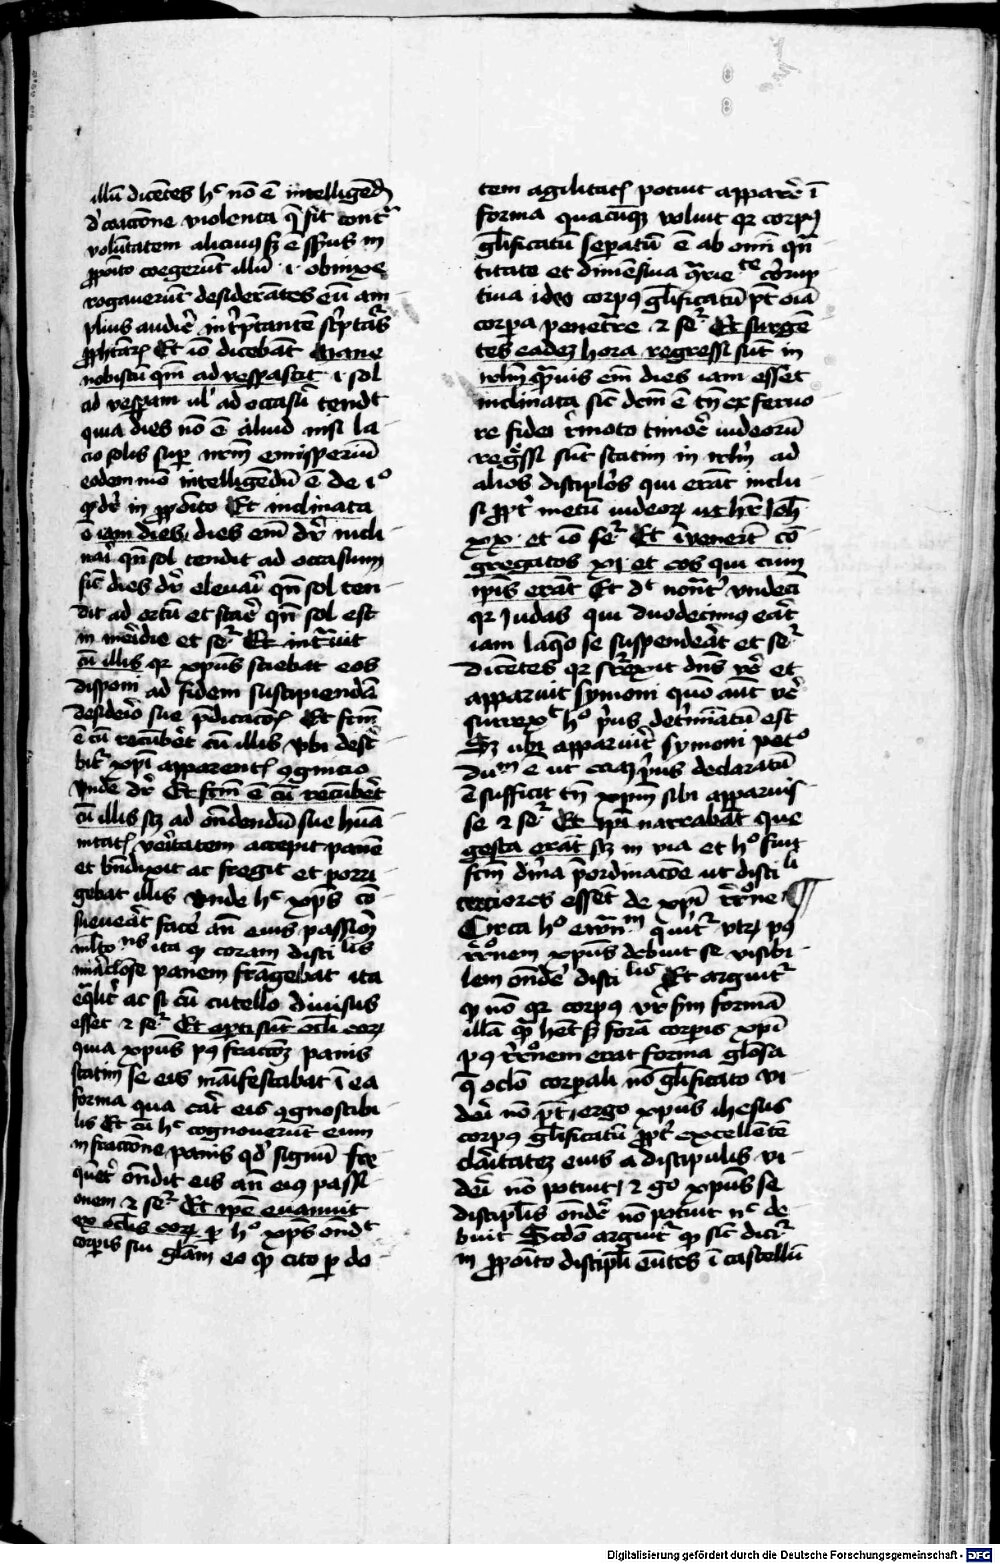 illū dicētes hͨ nō ē intelligēd
d' coaccōne violenta q̄ sit contͣ
volūtatem alicuius sꝫ e sensus in
ꝓpoīto coegerūt illū ·i· obnixe
rogaverūt desiderātes eū am
plius audir̄ int̄p̄tantē scͥptas
ꝓphtaꝝ Et iō dicebāt Mane
nobiscū qm̄ ad vesperascit ·i· sol
ad vesperam ul' ad occasū tendt
quia dies nō ē aliud nisi la
cio solis super nr̄m emisperiū
eodem mō intelligēdū ē de ·iͦ
qd' dr̄ in ꝓpoīto Et inclinata
ē iam dies, dies em̄ dr̄ incli
nari qn̄ sol tendit ad occasum
sic dies dr̄ elevari qn̄ sol ten
dit ad ortū et stare qn̄ sol est
in meridie et seͬ Et intͣvit
cū illis qr xp̄us sciebat eos
disponi ad fidem suscipiendā
desideriō sue p̄dicacōꝫ Et fctm̄
ē cū recūbēt cū illis vbi descͥ
bitͬ xp̄i apparentꝫ ꝯgnicio
vnde dr̄ Et fctm̄ ē cū recūbēt
cū illis scꝫ ad on̄dendū sue huā
nitatꝫ veritatem accepit panē
et bn̄dixit ac fregit et porri
gebat illis Unde hͨ xp̄us cō
sueverat facere an̄ eius passion̄
ml̄tos ita qꝫ coram discilis
miraclose panem frāgebat ita
eq̄lit̄ ac si cū cutello divisus
esset ⁊ seͬ Et apti sūt ocl̄i eoꝝ
quia xp̄us pꝰ fraccōeꝫ panis
statim se eis māifestabat ī ea
forma qua erat eis ꝯgnoscibi
lis Et cū hͨ cognoverūt eum
in fraccōne panis qd' signū fre
quēt' on̄dit eis an̄ eiꝰ passi
onem ⁊ seͬ Et ip̄e evanuit
ex ocl̄is eoꝝ ꝑ hͦ xp̄us on̄dͭ
corpis sui glām eo qꝫ cito ꝑ do
tem agilitatꝫ potuit apparē ī
forma quacūqꝫ voluit qr corpꝰ
gl̄ificatū sepatū ē ab om̄i qn̄
titate et dimēsiva q̄rie te corrup
tiva ideo corpꝰ gl̄ificatū pt̄ oīa
corpa penetͣre ⁊ seͬ Et surgē
tes eadeꝫ hora regressi sūt in
irlm̄ q̄mvis em̄ dies iam esset
inclinata sic dcm̄ ē tn̄ ex fervo
re fidei rͤmoto timore iudeorū
regͤssi sūt statim in irlm̄ ad
alios discipl̄os qui erāt inclu
si ꝓpt' metū iudeoꝝ ut hr̄ Joh̄
xx· et iō seͬ Et īvenerūt cō
gregatos xi et eos qui cum
ip̄is erāt Et dͭ notāt' vndeci
qr Judas qui duodecimꝰ erāt
iam laqͦo se suspenderat et seͬ
dicētes qr surrexit dn̄s ve' et
apparuit symoni quō aūt ve'
surrexͭ hͦ pͥus det'miatū est
Sꝫ ubi apparuit symoni petͦ
diuͫ ē ut eciaꝫ pͥus declaratū
ē sufficit tn̄ xp̄um sibi apparuis
se ⁊ seͬ Et ip̄i narrabāt que
gesta erāt scꝫ in via et hͦ fuit
fctm̄ divina p̄ordinacōe ut discili
cerciores essēt de xp̄i rͤrōne ¶
Circa hͦ ewāmͫ qͥrit' vtꝝ pꝰ
rͤrōnem xp̄us debuit se visibi
lem on̄de' discilis Et arguitͬ
qꝫ nō qr corpꝰ vr̄ sm̄ formā
illā q̄m het sꝫ formā corpis xp̄i
pꝰ rͤrōnem erat forma glōsa
q̄ oclō corporali nō gl̄ificato vi
deri nō pt̄, ergo xp̄us ihesus
corpꝰ gl̄ificatū ꝓpt' excellentē
claritateꝫ eius a discipulis vi
deri nō potuit, ⁊ go xp̄us se
discipl̄is on̄de' nō potuit nͨ de
buit Scd̄o arguitͬ qꝫ sic dicitͬ
in ꝓpoīto discipl̄i eūtes ī castellū
Digitalisierung gefördert durch die Deutsche Forschungsgemeinschaft - DFG